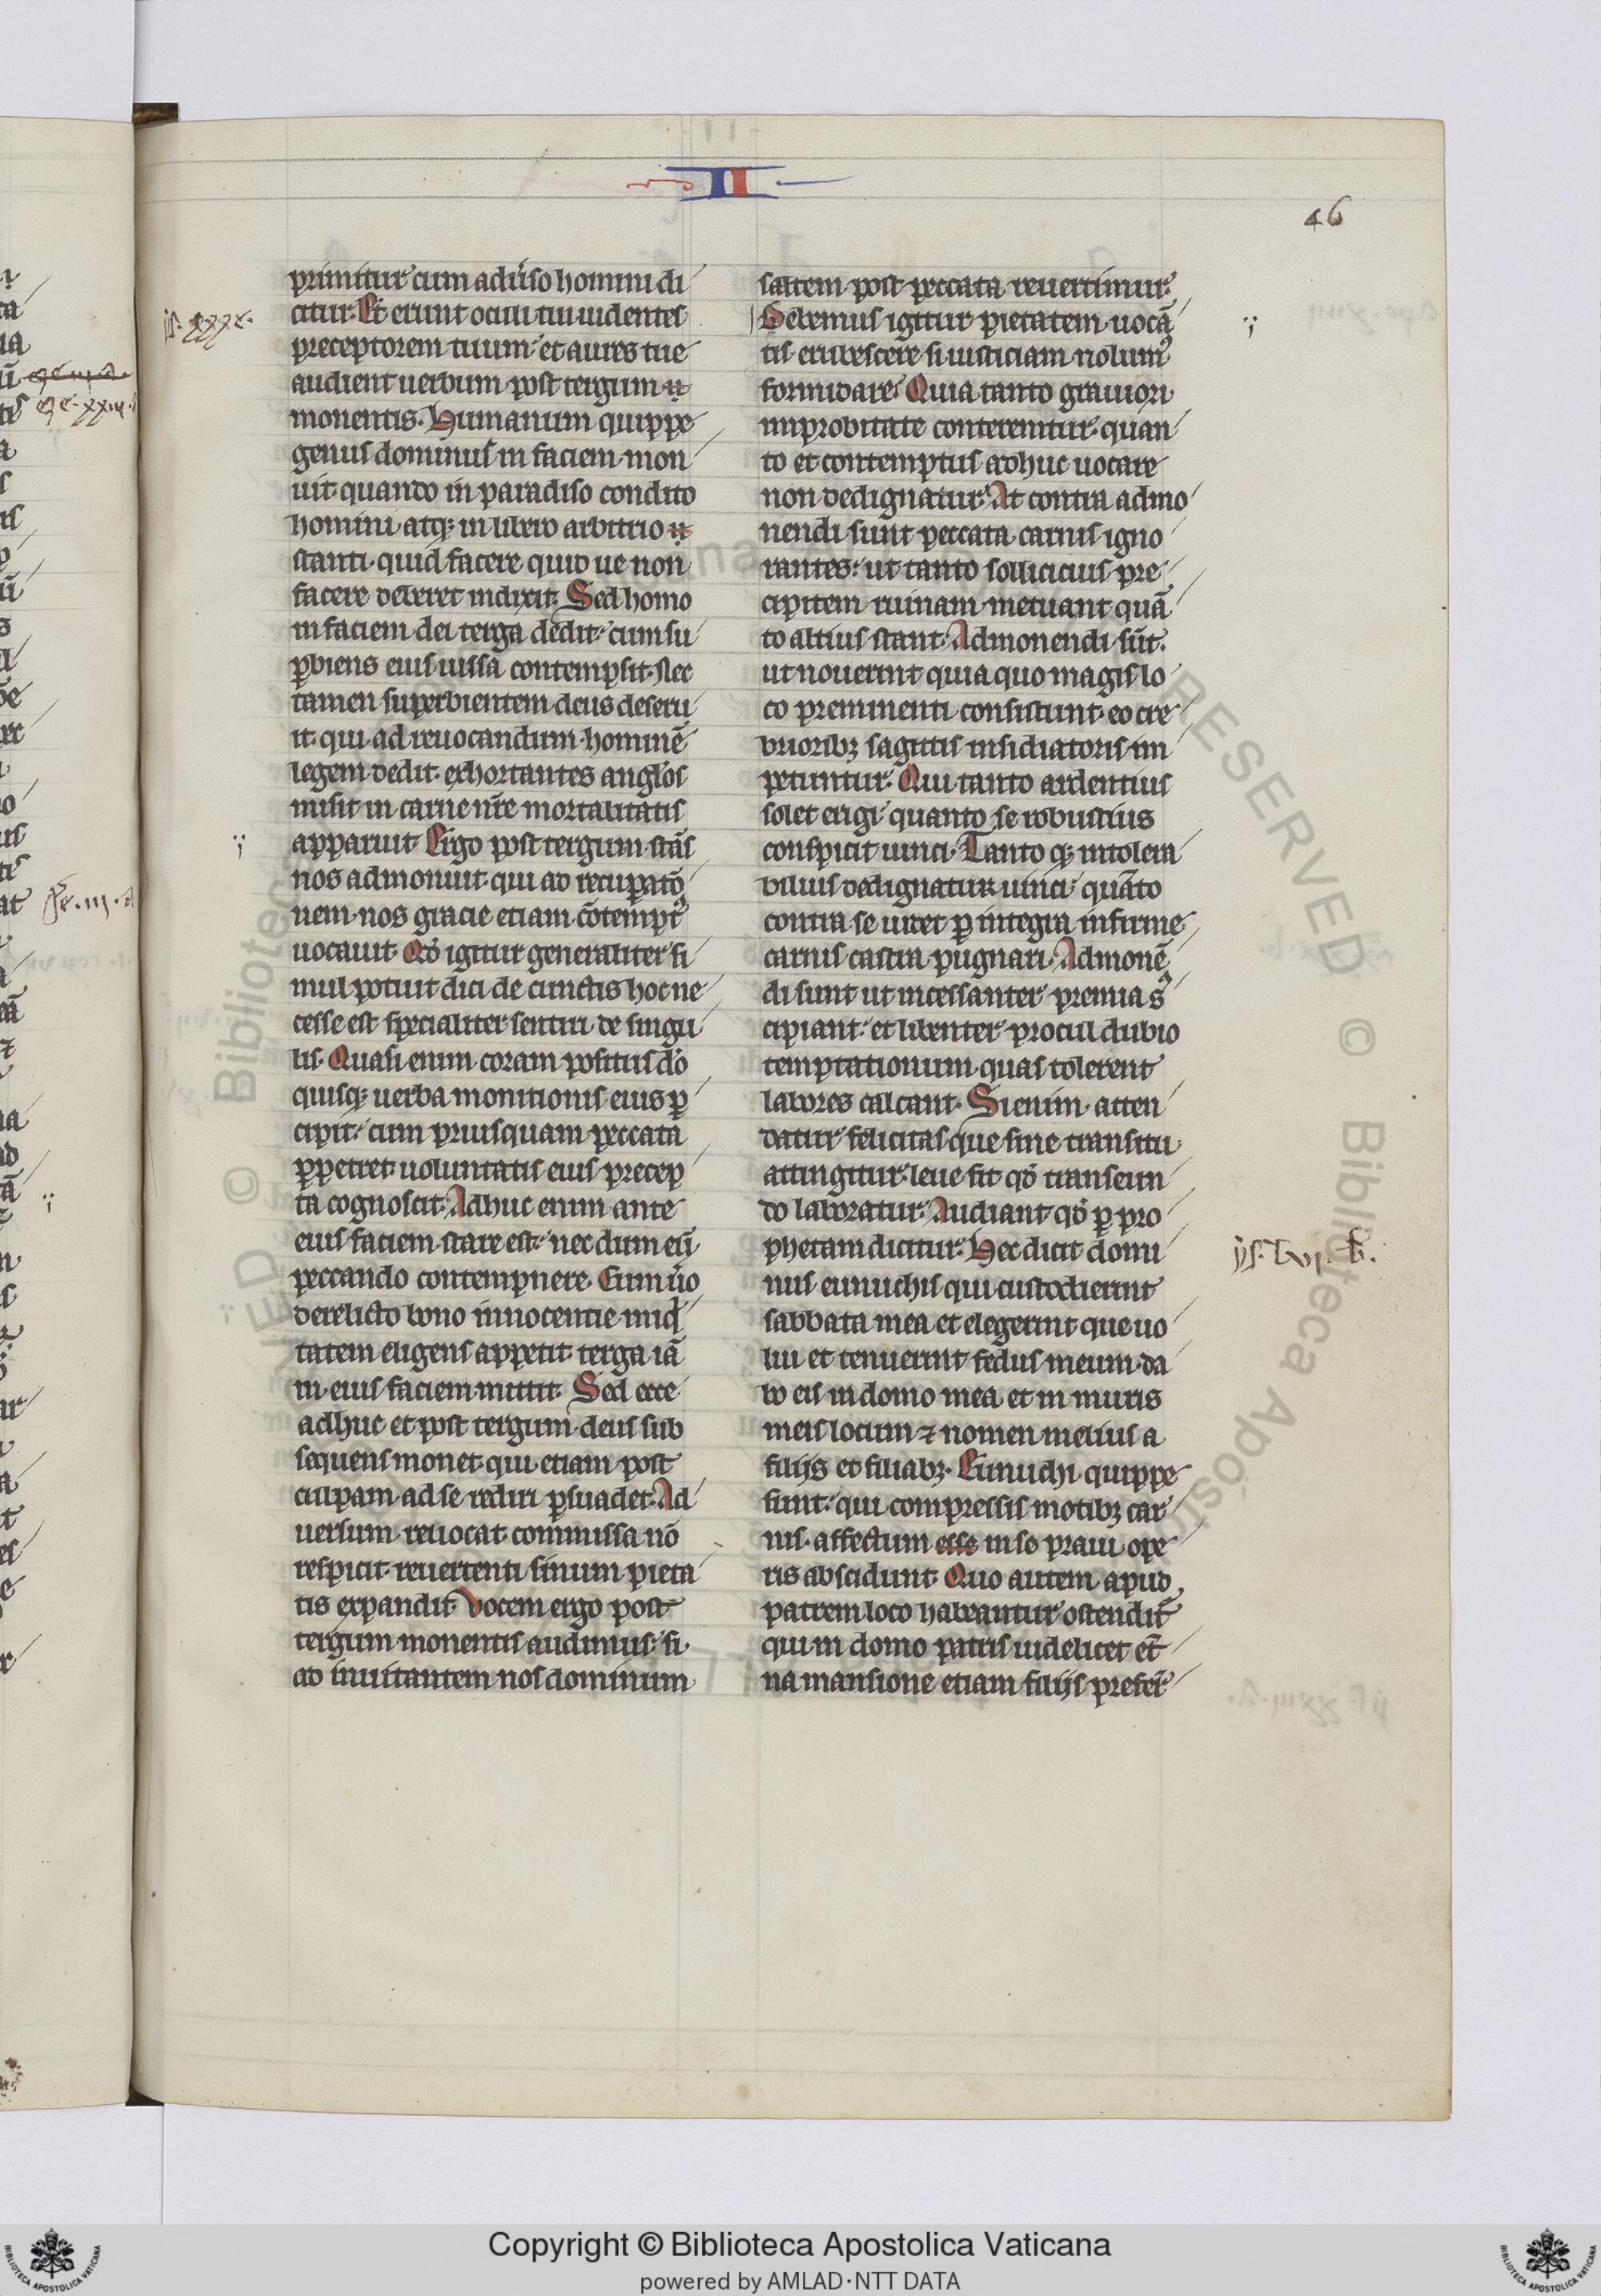 II
46
primitur cum adũso homini di
citur. Et erunt oculi tui uidentes
preceptorem tuum et aures tue
audient uerbum post tergum
monentis. Humanum quippe
genus dominus in faciem mon
uit quando in paradiso condito
homini atq; in libero arbitrio
stanti. quid facere quid ue non
facere deberet indixit. Sed homo
in faciem dei terga dedit. cum su
ꝑbiens eius iussa contempsit. Nec
tamen superbientem deus deseru
it. qui ad reuocandum hominẽ
legem dedit. exhortantes angl̃os
misit in carne nr̃e mortalitatis
apparuit. Ergo post tergum stãs
nos admonuit. qui ad recuꝑatõ
nem nos gracie etiam cõtemptꝰ
uocauit. Qd̃ igitur generaliter si
mul potuit dici de cunctis hoc ne
cesse est specialiter sentiri de singu
lis. Quasi enim coram positus dõ
quisq; uerba monitionis eius ꝑ
cipit. cum priusquam peccata
ꝑpetret uoluntatis eius precep
ta cognoscit. Adhuc enim ante
eius faciem stare est. nec dum eũ
peccando contempnere. Cum ũo
derelicto bono innocentie iniq̃
tatem eligens appetit. terga iã
in eius faciem mittit. Sed ecce
adhuc et post tergum deus sub
sequens monet. qui etiam post
culpam ad se rediri ꝑsuadet. Ad
uersum reuocat commissa nõ
respicit. reuertenti sinum pieta
tis expandit. Vocem ergo post
tergum monentis audimus. si
ad inuitantem nos dominum
saltem post peccata reuertimur.
Debemus igitur pietatem uocã
tis erubescere si iusticiam nolumꝰ
formidare. Quia tanto grauiori
improbitate contemnitur. quan
to et contemptus adhuc uocare
non dedignatur. At contra admo
nendi sunt peccata carnis igno
rantes. ut tanto sollicicius pre
cipitem ruinam metuant quã
to altius stant. Admonendi sũt.
ut nouerint quia quo magis lo
co preminenti consistunt. eo cre
brioribꝫ sagittis insidiatoris im
petuntur. Qui tanto ardentius
solet erigi quanto se robustius
conspicit uinci. Tanto q; intolera
bilius dedignatur uinci. quãto
contra se uidet ꝑ integra infirme
carnis castra pugnari. Admonẽ
di sunt ut incessanter premia sꝰ
cipiant. et libenter procul dubio
temptationum quas tolerent
labores calcant. Si enim atten
datur felicitas que sine transitu
attingitur. leue fit qd̃ transeun
do laboratur. Audiant qd̃ ꝑ pro
phetam dicitur. Hec dicit domi
nus eunuchis qui custodierint
sabbata mea et elegerint que uo
lui et tenuerint fedus meum. da
bo eis in domo mea et in muris
meis locum ⁊ nomen melius a
filijs et filiabꝫ. Eunuchi quippe
sunt. qui compressis motibꝫ car
nis. affectum esse in se praui ope
ris abscidunt. Quo autem apud
patrem loco habeantur ostendit̃
qui in domo patris uidelicet et̃
na mansione etiam filijs prefer̃
Copyright © Biblioteca Apostolica Vaticana
powered by AMLAD·NTT DATA